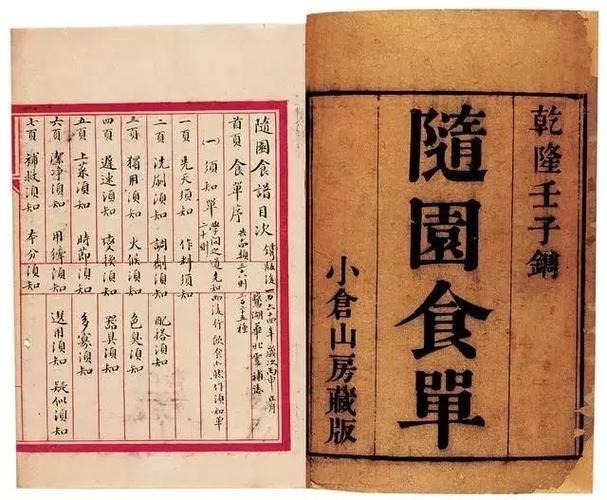 乾隆壬子鐫
隨園食單
小倉山房藏版
隨園食譜目次
歲次丙申正月
補誌
首頁 食單序
(一) 須知單 二十則
學問之道先知而後行飲食亦然作須知單
一頁 先天須知 作料須知
二頁 洗刷須知 調劑須知 配搭須知
三頁 獨用須知 火候須知 色臭須知
四頁 遲速須知 變換須知 器具須知
五頁 上菜須知 時節須知 多寡須知
六頁 潔净須知 用縴須知 選用須知 疑似須知
七頁 補救須知 本分須知